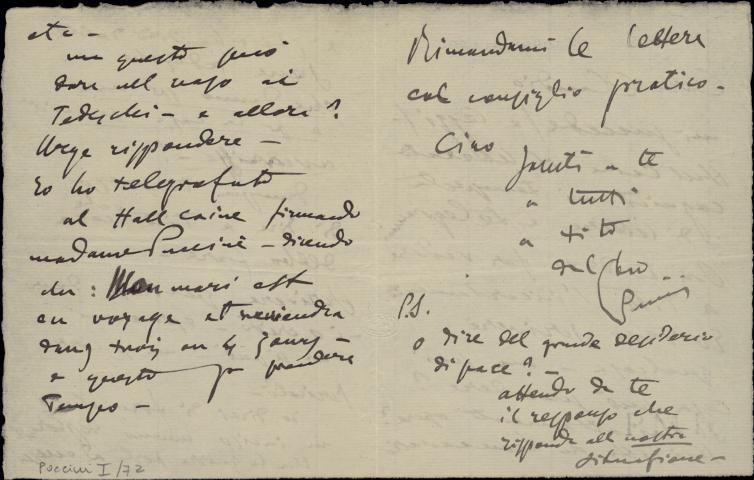 etc –
ma questo può
dare nel naso ai
Tedeschi – e allora?
Urge rispondere –
Io ho telegrafato
al Hall Caine firmando
madame Puccini – dicendo
che: Mon mari est
en voyage et reviendra
dans trois ou 4 jours –
e questo per prendere
Tempo –
Puccini I/72
Rimandami le lettere
col consiglio pratico –
Ciao saluti a te
a tutti
a Tito
dal tuo
P.S.
o dire del grande desiderio
di pace? –
attendo da te
il responso che
risponda alla nostra
situazione –